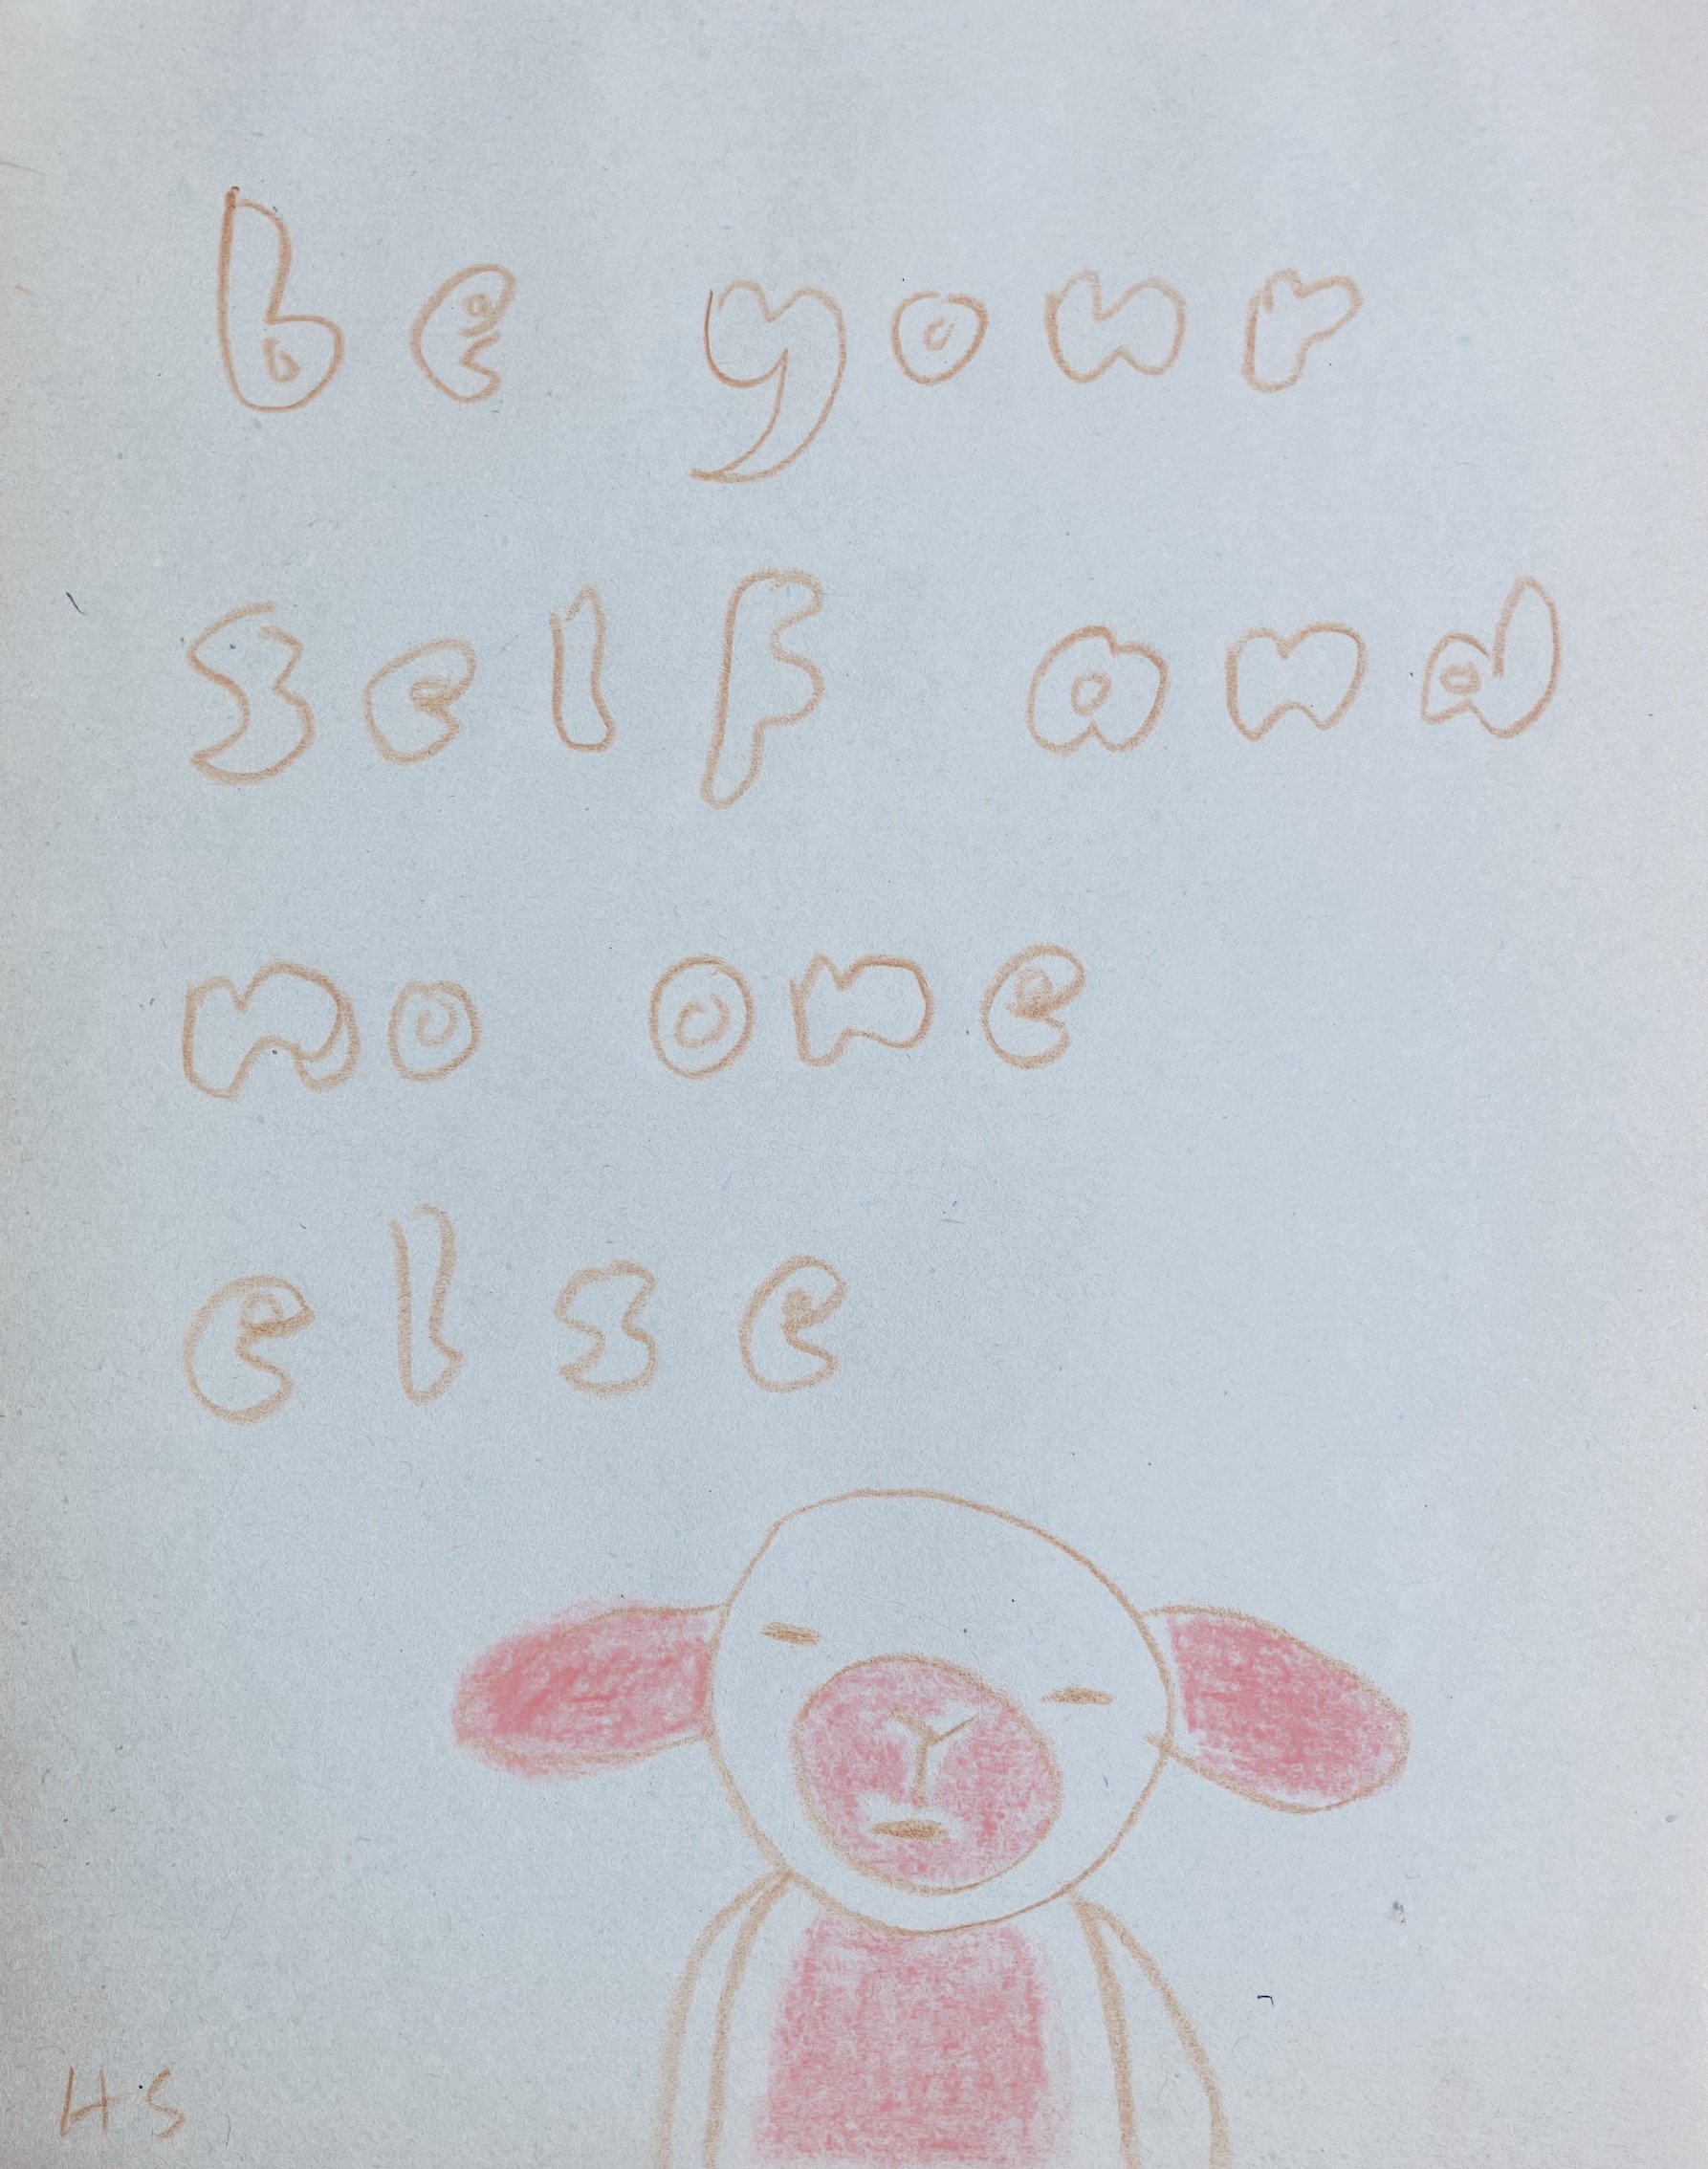 be your
self and
no one
else
HS